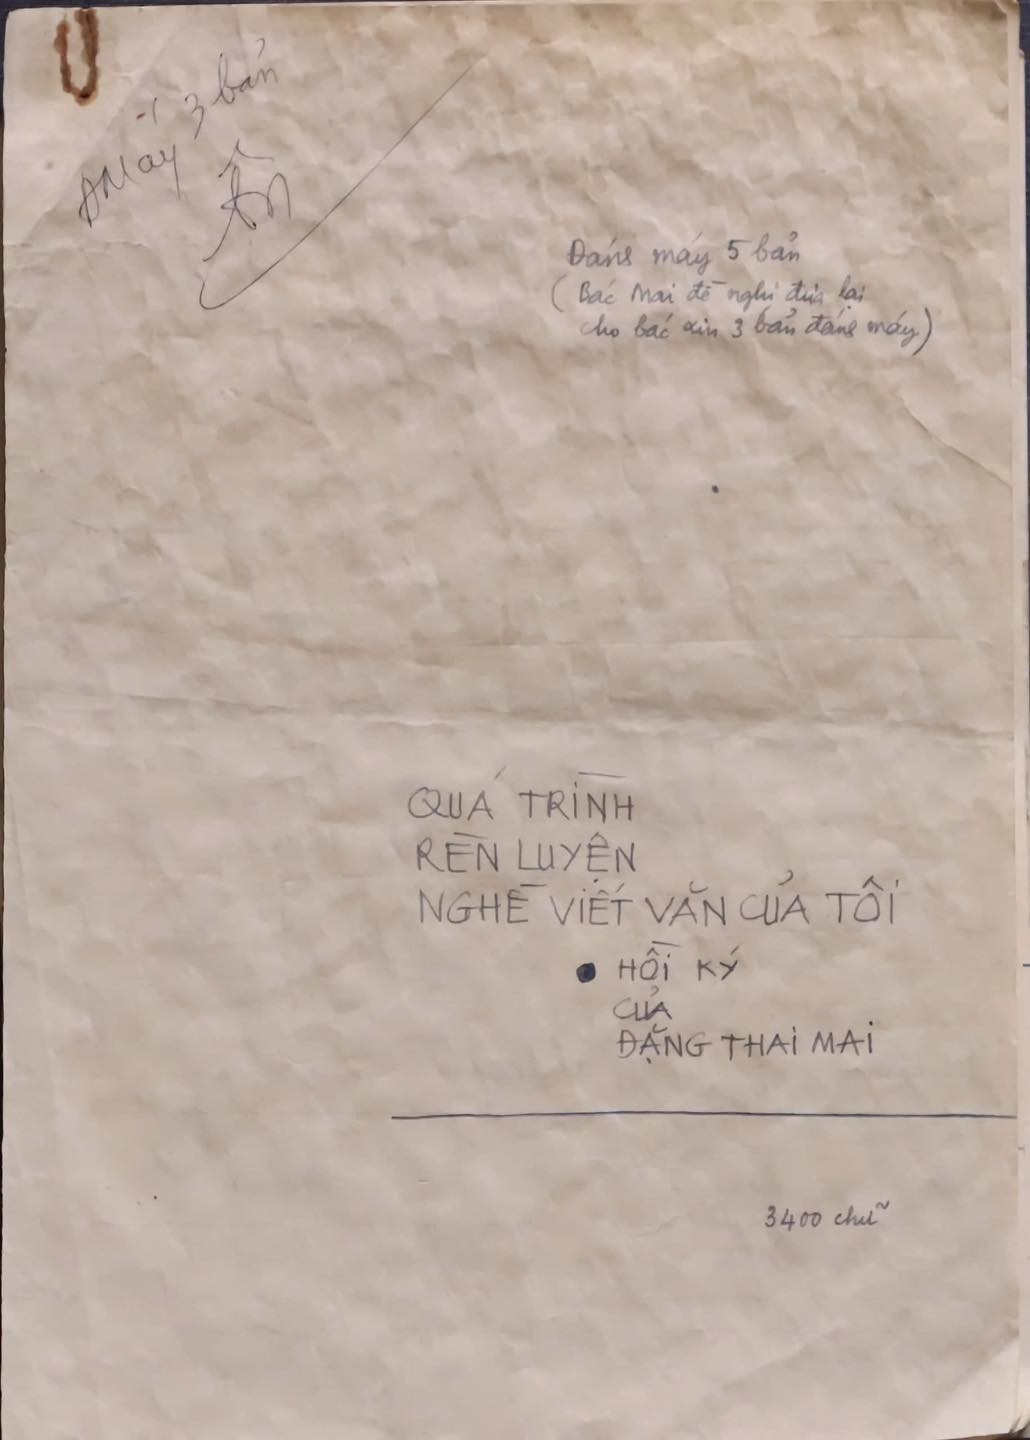 Máy 3 bản
Đánh máy 5 bản
(Bác Mai đề nghị đưa lại
cho bác xin 3 bản đánh máy)
QUÁ TRÌNH
RÈN LUYỆN
NGHỀ VIẾT VĂN CỦA TÔI
• HỒI KÝ
CỦA
ĐẶNG THAI MAI
3400 chữ